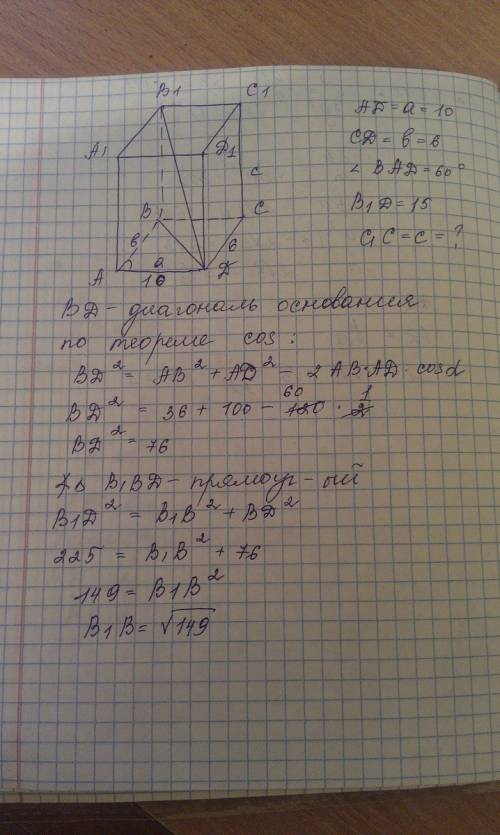 B1
C1
A1
D1
c
B
C
6
a
6
A
10
D
AD = a = 10
CD = b = 6
∠ BAD = 60°
B1D = 15
C1C = c = ?
BD - диагональ основания
по теореме cos:
BD² = AB² + AD² - 2 AB·AD·cosα
BD² = 36 + 100 - 120 60 · 1/2
BD² = 76
Δ B1BD - прямоуг-ый
B1D² = B1B² + BD²
225 = B1B² + 76
149 = B1B²
B1B = √149